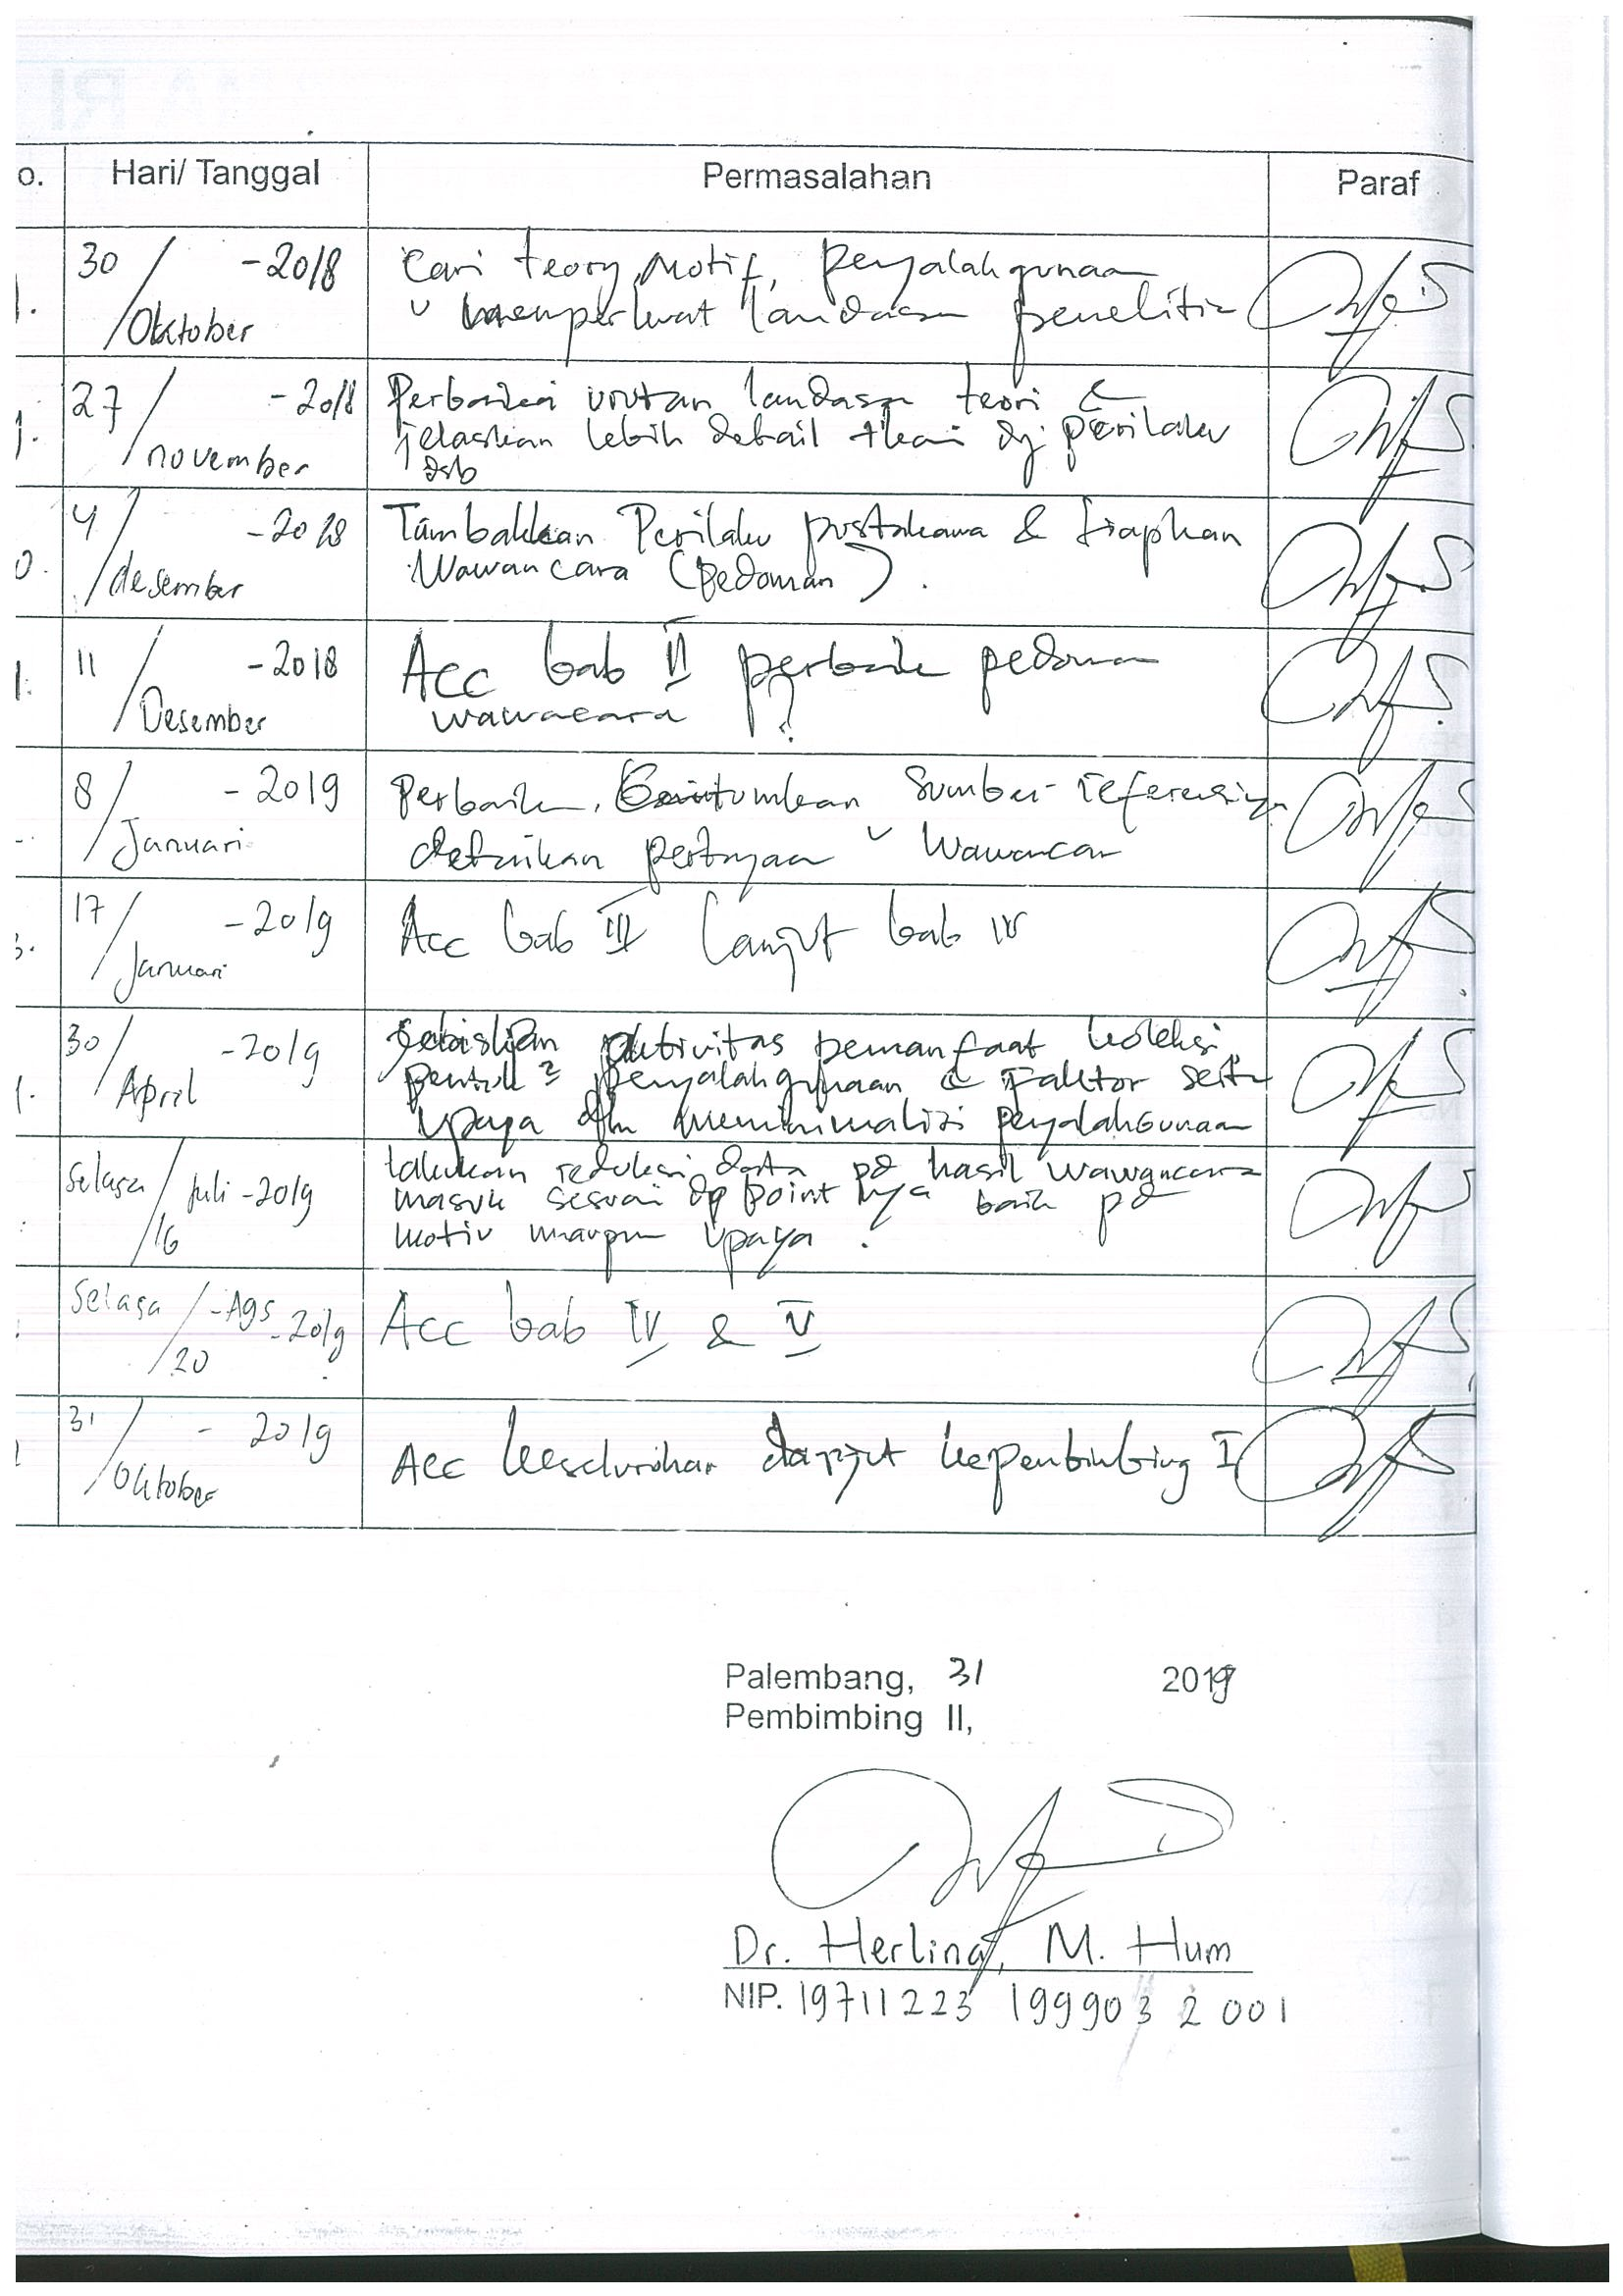 o. Hari/ Tanggal Permasalahan Paraf
30 / Oktober -2018
Cari teory Motif, penyalahgunaan
memperkuat landasan penelitia
27 / november -2018
Perbaiki urutan landasan teori &
jelaskan lebih detail tkai dg perilaku
dsb
4 / desember -2018
Tambahkan Perilaku pustakawa & siapkan
Wawancara (pedoman).
11 / Desember -2018
Acc bab II perbaiki pedoman
wawacara
8 / Januari - 2019
Perbaiki, Cantumkan Sumber referensinya
detaikan pertnyaan Wawancara
17 / Januari -2019
Acc bab III lanjut bab IV
30 / April -2019
Jelaskan aktivitas pemanfaat koleksi,
bentuk2 penyalahgunaan & Faktor serta
upaya dlm meminimalisi penyalahgunaan
Selasa / 16 Juli -2019
lakukan reduksi data pd hasil wawancara
masuk sesuai dg point nya baik pd
motiv maupun upaya.
Selasa / 20 -Ags -2019
Acc bab IV & V
31 / Oktober - 2019
Acc keseluruhan lanjut kepembimbing I
Palembang, 31 2019
Pembimbing II,
Dr. Herlina, M. Hum
NIP. 19711223 199903 2 001